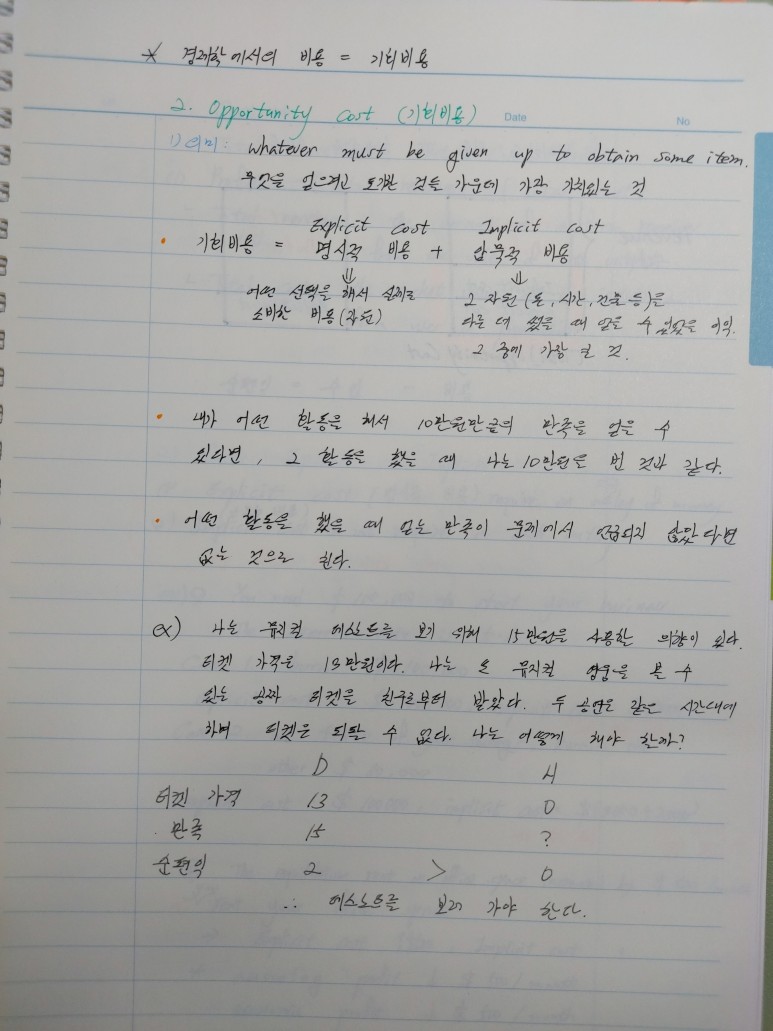 * 경제학에서의 비용 = 기회비용
2. Opportunity cost (기회비용)
Date
No
1) 의미: whatever must be given up to obtain some item.
무엇을 얻으려고 포기한 것들 가운데 가장 가치있는 것
Explicit cost Implicit cost
• 기회비용 = 명시적 비용 + 암묵적 비용
⇓ ⇓
어떤 선택을 해서 실제로 그 자원(돈, 시간, 건물 등)을
소비한 비용(자원) 다른 데 썼을 때 얻을 수 있었을 이익.
그 중에 가장 큰 것.
• 내가 어떤 활동을 해서 10만원만큼의 만족을 얻을 수
있다면, 그 활동을 했을 때 나는 10만원을 번 것과 같다.
• 어떤 활동을 했을 때 얻는 만족이 문제에서 언급되지 않았다면
없는 것으로 친다.
ex) 나는 뮤지컬 데스노트를 보기 위해 15만원을 사용할 의향이 있다.
티켓 가격은 13만원이다. 나는 또 뮤지컬 영웅을 볼 수
있는 공짜 티켓을 친구로부터 받았다. 두 공연은 같은 시간대에
하며 티켓은 되팔 수 없다. 나는 어떻게 해야 할까?
D H
티켓 가격 13 0
만족 15 ?
순편익 2 > 0
∴ 데스노트를 보러 가야 한다.